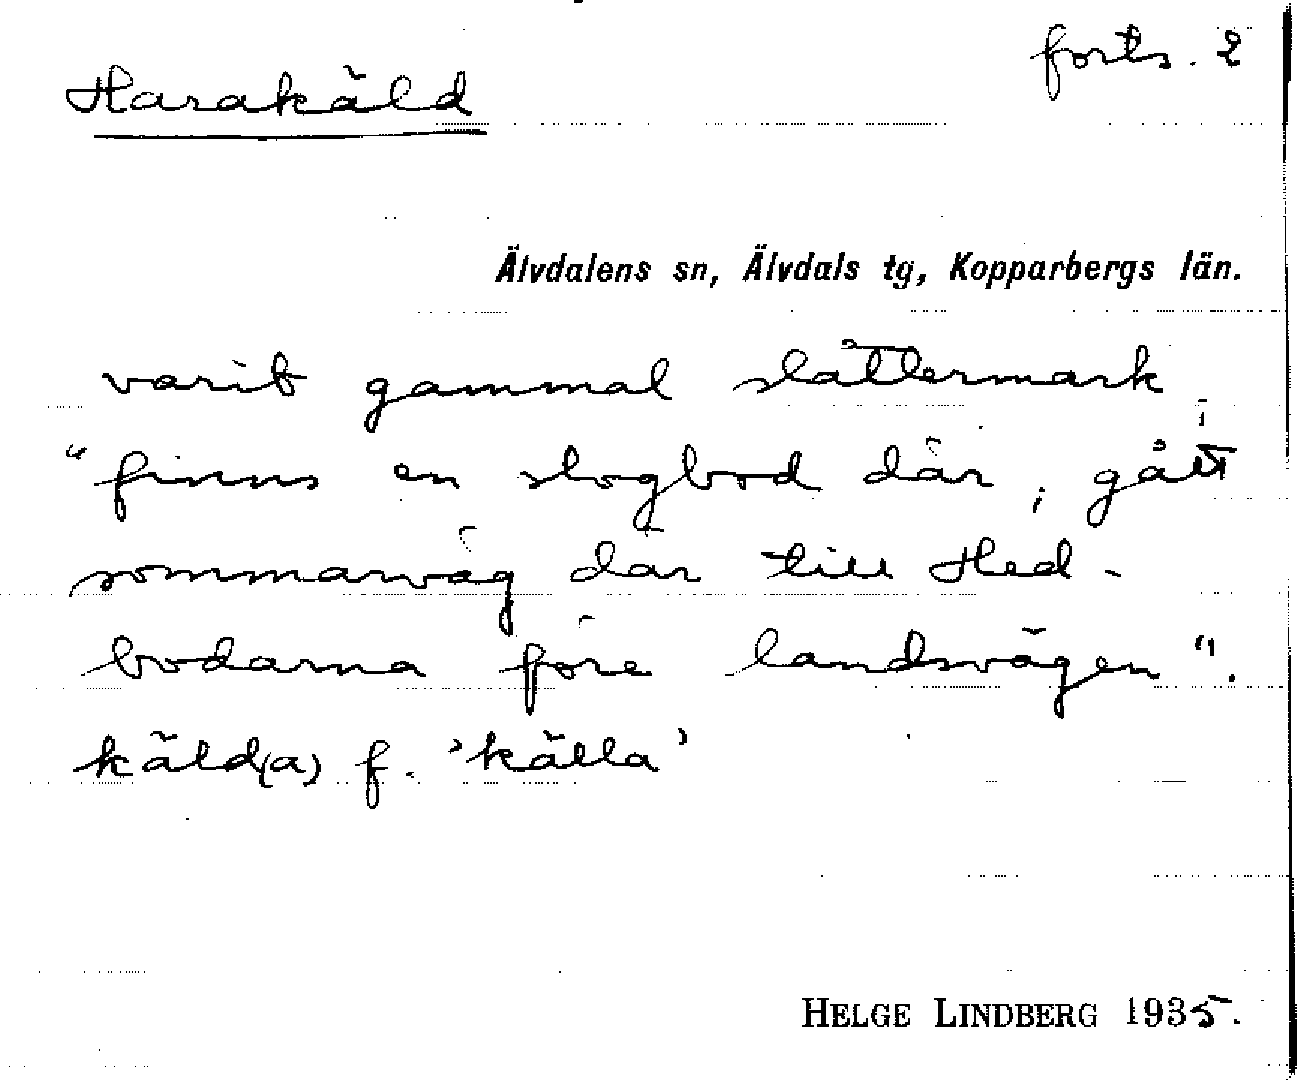 forts. 2
Harakäld
Älvdalens sn, Älvdals tg, Kopparbergs län.
varit gammal slåttermark
"finns en slogbod där, gått
sommarväg där till Hed-
bodarna före landsvägen".
käld(a) f. 'källa'
HELGE LINDBERG 1935.